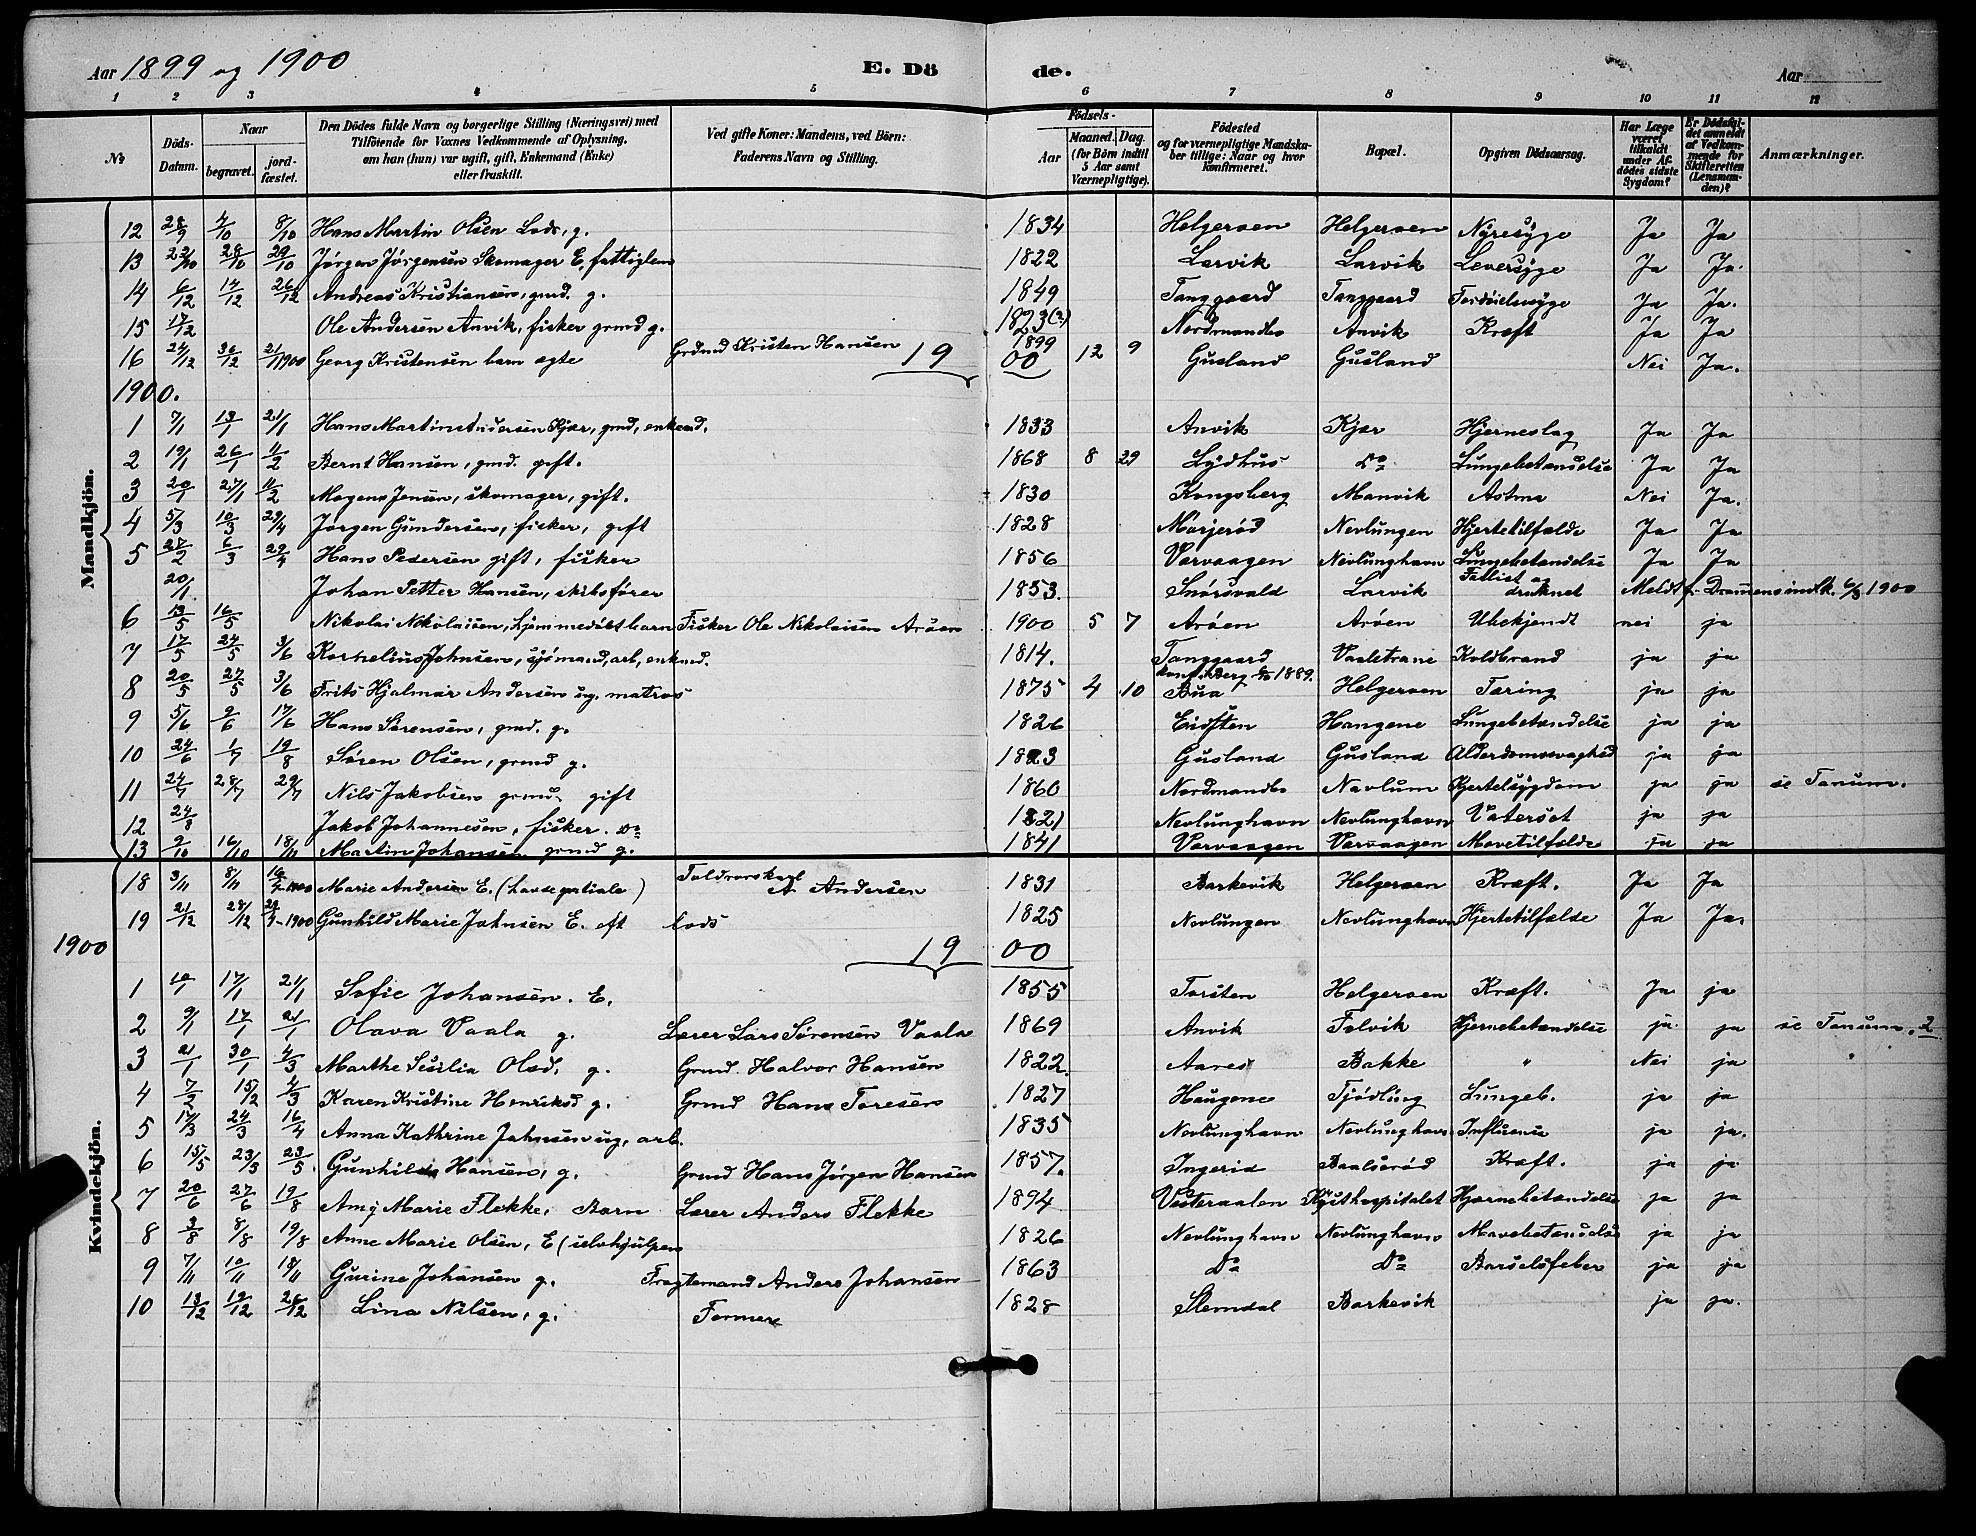 Aar 1899 og 1900 E. Dö de. Aar
1 2 3 4 5 6 7 8 9 10 11 12
№ Döds-Datum. Naar begravet. jord-fæstet. Den Dödes fulde Navn og borgerlige Stilling (Næringsvei) med Tilföiende for Voxnes Vedkommende af Oplysning, om han (hun) var ugift, gift, Enkemand (Enke) eller fraskilt. Ved gifte Koner: Mandens, ved Börn: Faderens Navn og Stilling. Födsels- Aar Maaned. Dag. (for Börn indtil 5 Aar samt Værnepligtige). Födested og for værnepligtige Mandskaber tillige: Naar og hvor konfirmeret. Bopæl. Opgiven Dödsaarsag. Har Læge været tilkaldt under Afdödes sidste Sygdom? Er Dödsfaldet anmeldt af Vedkommende for Skifteretten (Lensmanden)? Anmærkninger.
Mandkjön.
12 28/9 4/10 8/10 Hans Martin Olsen Lods, g. 1834 Helgeroen Helgeroen Nyresyge Ja Ja
13 22/10 28/10 29/10 Jørgen Jørgensen Skomager E. fattiglem 1822 Larvik Larvik Leversyge Ja Ja.
14 6/12 14/12 26/12 Andreas Kristiansen, gmd. g. 1849 Tanggaard Tanggaard Fordøielsessyge Ja Ja.
15 17/12 Ole Andersen Anvik, fisker grmd g. 1823(?) Nordmandbo Anvik Kræft Ja Ja
16 24/12 30/12 21/1 1900 Georg Kristensen barn ægte Grdmd Kristen Hansen 1899 12 9 Gusland Gusland Nei Ja.
1900. 1900
1 7/1 13/1 21/1 Hans Martin Andersen Kjær, gmd, enkemd. 1833 Anvik Kjær Hjerneslag Ja Ja
2 19/1 26/1 11/2 Bernt Hansen, gmd. gift. 1868 8 29 Lydhus Do Lungebetændelse Ja Ja
3 20/1 27/1 11/2 Mogens Jensen, skomager, gift. 1830 Kongsberg Manvik Astma Nei Ja.
4 5/3 10/3 29/4 Jørgen Gundersen, fisker, gift 1828 Marjerød Nevlungen Hjertetilfælde Ja Ja
5 27/2 6/3 29/4 Hans Pedersen gift, fisker 1856 Varvaagen Nevlunghavn Lungebetændelse Ja Ja
20/1 Johan Petter Hansen, skibsfører 1853. Snørsvald Larvik Forlist og druknet Meldt fr. Drammens indtk. 6/3 1900
6 13/5 16/5 Nikolai Nikolaisen, hjemmedøbt barn Fisker Ole Nikolaisen Arøen 1900 5 7 Arøen Arøen Ubekjendt nei ja
7 17/5 24/5 3/6 Kornelius Johnsen, sjømand, arb, enkmd. 1814. Tanggaard Vaaletrane Koldbrand ja ja
8 20/5 27/5 3/6 Frits Hjalmar Andersen ug. matros 1875 4 10 konf. i Berg 6/10 1889. Bua Helgeroen Tæring ja ja
9 5/6 9/6 17/6 Hans Sørensen, gmd. g. 1826 Eidsten Haugene Lungebetændelse ja ja
10 24/6 1/7 19/8 Søren Olsen, grmd g. 1823 Gusland Gusland Alderdomssvaghed ja ja
11 24/7 28/7 29/7 Nils Jakobsen grmd. gift 1860 Nordmandbo Navlum Hjertesygdom ja ja se Tanum.
12 24/8 Jakob Johannesen, fisker. Do 1821 Nevlunghavn Nevlunghavn Vatersot ja ja
13 9/10 16/10 18/11 Martin Johansen grmd g. 1841 Varvaagen Varvaagen Mavetilfælde ja ja
Kvindekjön.
18 3/11 8/11 1900 Marie Andersen E. Toldrorskarl A Andersen 1831 Barkevik Helgeroen Kræft. Ja Ja
19 21/12 28/12 1900 Gunhild Marie Johnsen E. eft lods 1825 Nevlungen Nevlunghavn Hjertetilfælde Ja Ja.
1900 1900
1 10/1 17/1 21/1 Sofie Johansen. E. 1855 Torsten Helgeroen Kræft. Ja ja
2 9/1 17/1 21/1 Olava Vaala g. Lærer Lars Sørensen Vaala 1869 Anvik Folvik Hjernebetændelse ja ja se Tanum. 2
3 21/1 30/1 4/3 Marthe Sesilia Olsd, g. Grmd. Halvor Hansen 1822. Aares Bakke " Nei ja "
4 7/2 15/2 4/3 Karen Kristine Henriksd g. Grmd Hans Toresen 1827 Haugene Tjødling Lungeb. ja ja
5 17/3 24/3 16/4 Anna Kathrine Johnsen ug, arb. 1835 Nevlunghavn Nevlunghavn Influensa ja ja.
6 15/5 23/5 23/5 Gunhilde Hansen, g. Grmd Hans Jørgen Hansen 1857. Ingerid Baalserød Kræft. ja ja
7 20/6 27/6 19/8 Amy Marie Flekke, Barn Lærer Anders Flekke 1894 Vesteraalen Kysthospitalet Hjernebetændelse ja ja
8 3/8 8/8 19/8 Anne Marie Olsen, E (selvhjulpen 1826 Nevlunghavn Nevlunghavn Mavebetændelse ja ja
9 7/11 10/11 18/11 Gurine Johansen g. Fragtemand Anders Johansen 1863 Do Do Barselsfeber ja ja
10 13/12 19/12 26/12 Lina Nilsen, g. Former 1828 Slemdal Barkevik ja ja.